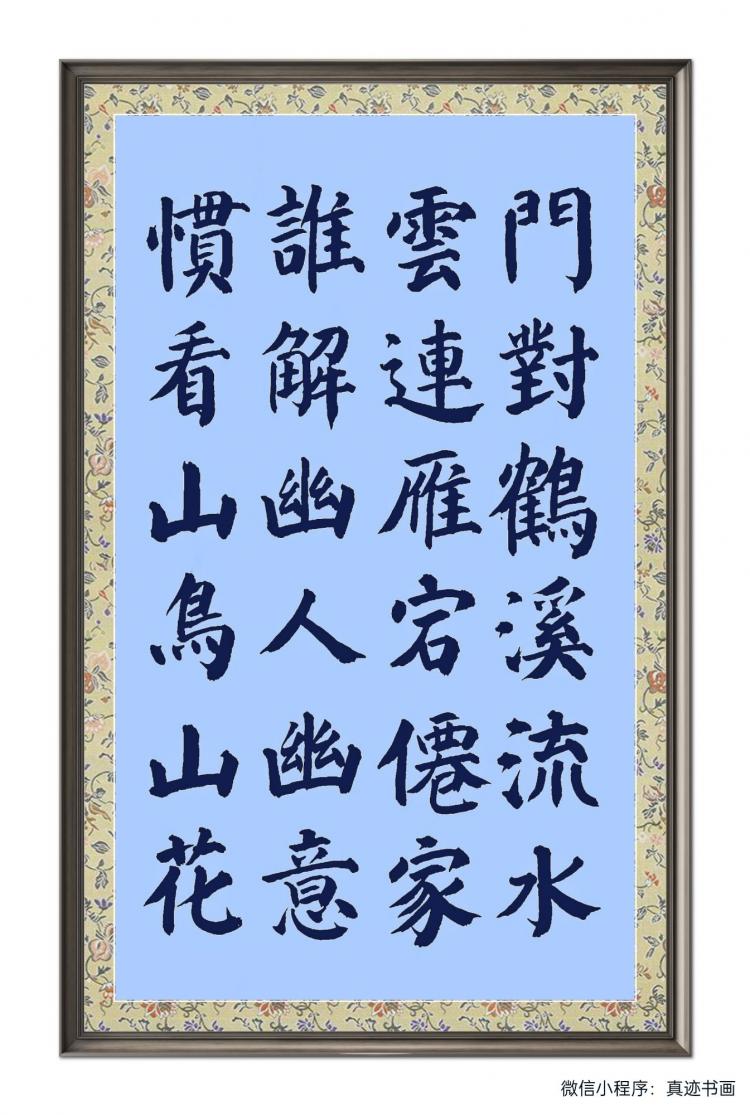 門對鶴溪流水
雲連雁宕僊家
誰解幽人幽意
慣看山鳥山花
微信小程序：真迹书画